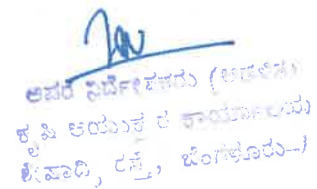 ಅಪರ ನಿರ್ದೇಶಕರು (ಆಡಳಿತ)
ಕೃಷಿ ಆಯುಕ್ತರ ಕಾರ್ಯಾಲಯ
ಶೇಷಾದ್ರಿ ರಸ್ತೆ, ಬೆಂಗಳೂರು-1